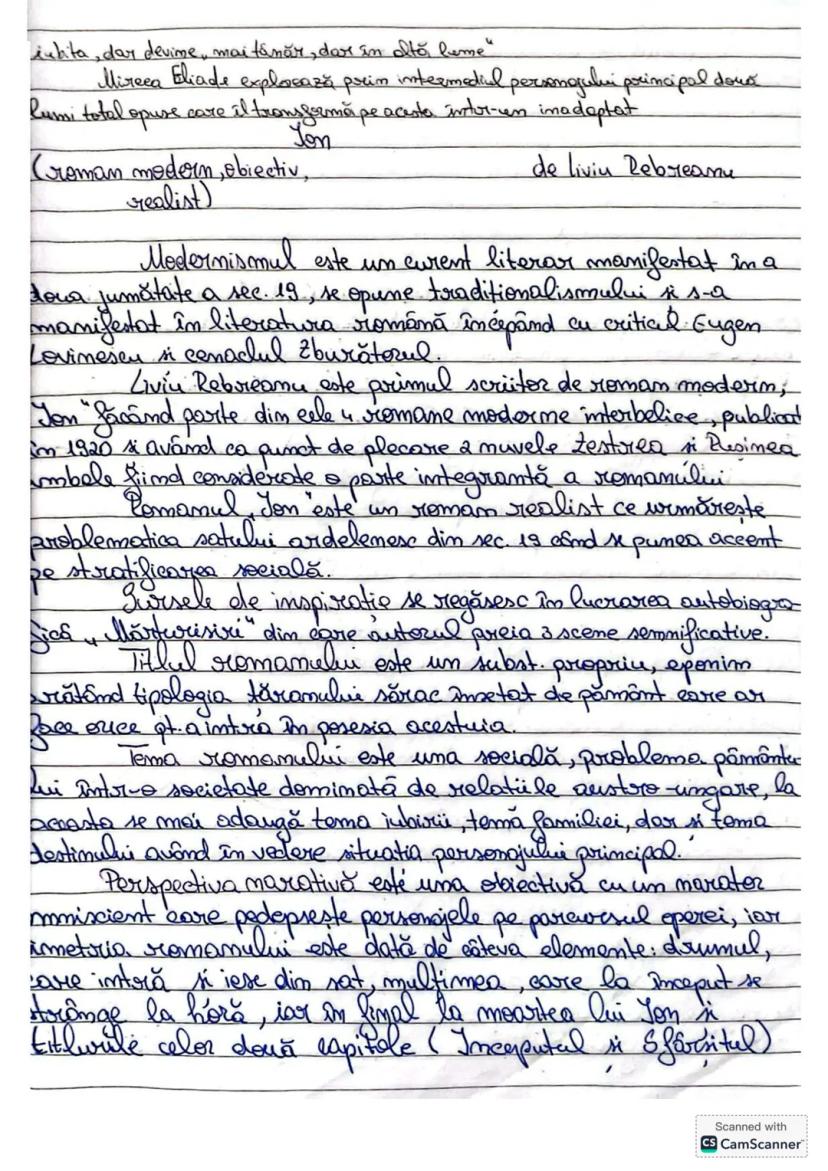 iubita, dar devine „mai tânăr, dar în altă lume"
Mircea Eliade explorează prin intermediul personajului principal două
lumi total opuse care îl transformă pe acesta într-un inadaptat
Ion
(roman modern, obiectiv, de Liviu Rebreanu
realist)
Modernismul este un curent literar manifestat în a
doua jumătate a sec. 19, se opune tradiționalismului și s-a
manifestat în literatura română începând cu criticul Eugen
Lovinescu și cenaclul Zburătorul.
Liviu Rebreanu este primul scriitor de roman modern,
„Ion" făcând parte din cele 4 romane moderne interbelice, publicat
în 1920 și având ca punct de plecare 2 nuvele Zestrea și Rușinea
ambele fiind considerate o parte integrantă a romanului
Romanul „Ion" este un roman realist ce urmărește
problematica satului ardelenesc din sec. 19 când se punea accent
pe stratificarea socială.
Sursele de inspirație se regăsesc în lucrarea autobiogra-
fică „Mărturisiri" din care autorul preia 3 scene semnificative.
Titlul romanului este un subst. propriu, eponim
arătând tipologia țăranului sărac însetat de pământ care ar
face orice pt. a intra în posesia acestuia.
Tema romanului este una socială, problema pământu-
lui într-o societate dominată de relațiile austro-ungare, la
aceasta se mai adaugă tema iubirii, temă familiei, dar și tema
destinului având în vedere situația personajului principal.
Perspectiva narativă este una obiectivă cu un narator
omniscient care pedepsește personajele pe parcursul operei, iar
simetria romanului este dată de câteva elemente: drumul,
care intră și iese din sat, mulțimea, care la început se
strânge la horă, iar în final la moartea lui Ion și
titlurile celor două capitole (Începutul și Sfârșitul)
Scanned with
CS CamScanner